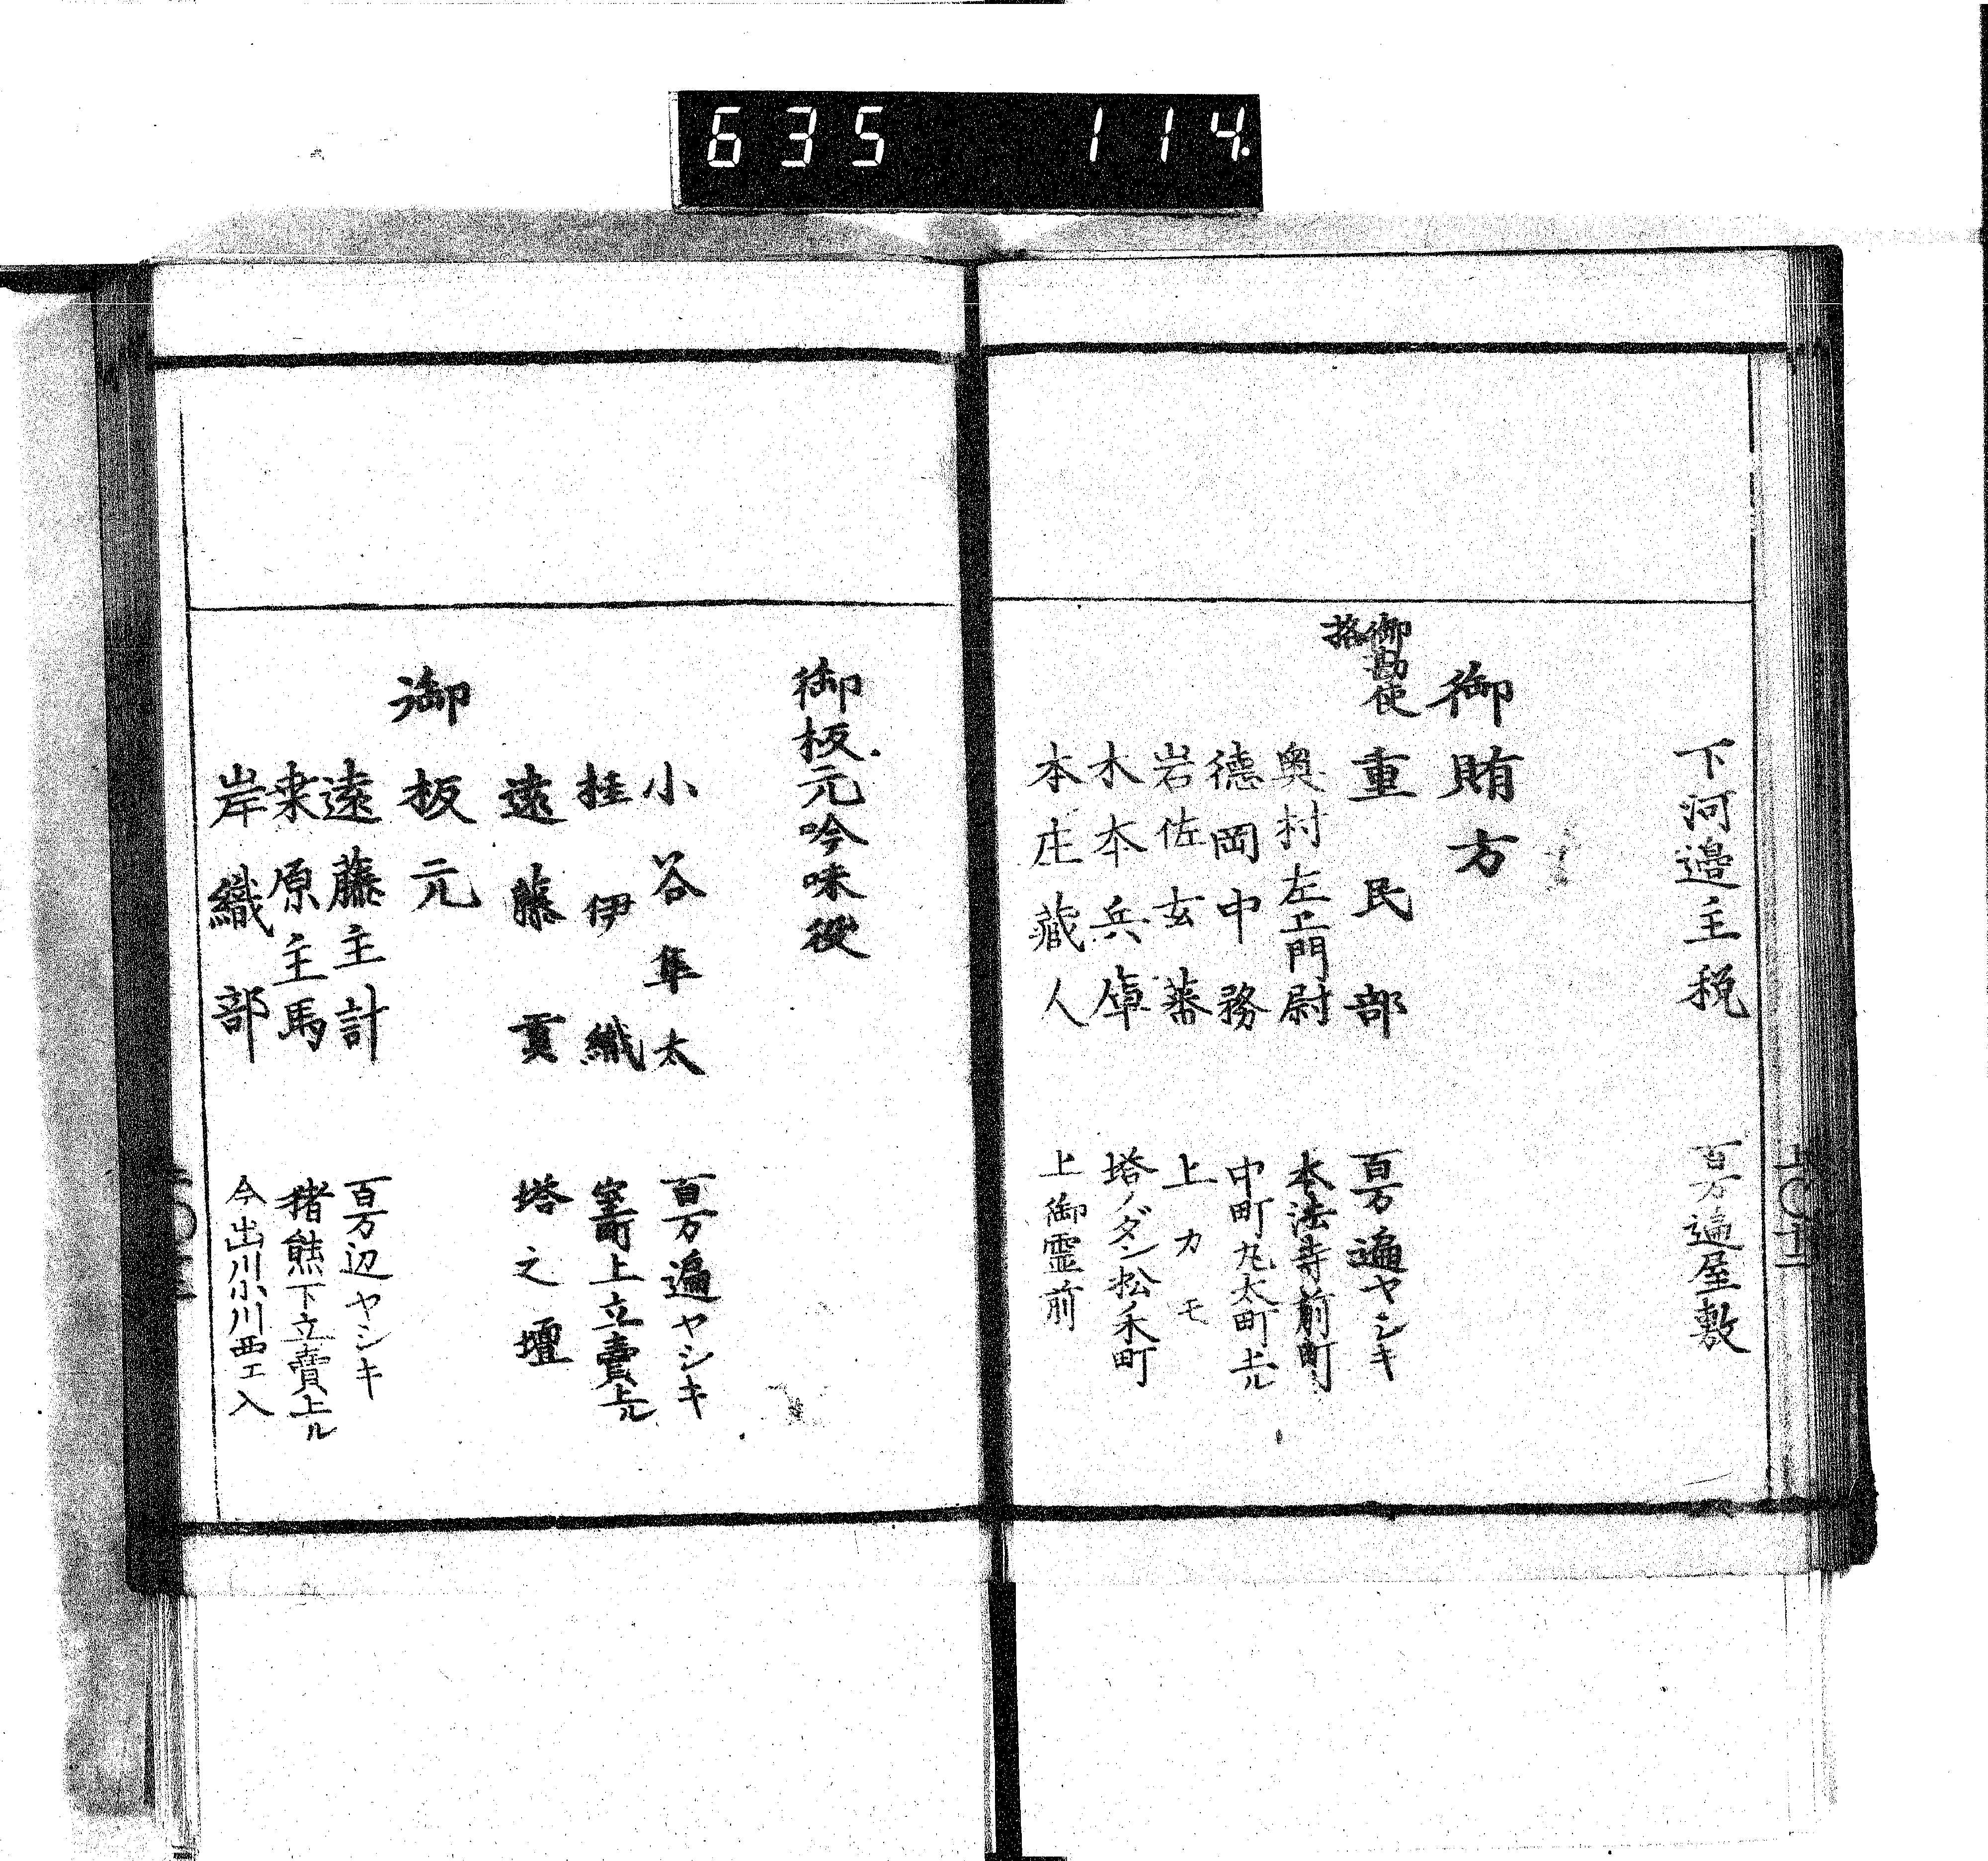 635 114.
下河邉主税 百万遍屋敷
御賄方
御勘使格
重民部 百万遍ヤシキ
奥村左エ門尉 本法寺前町
徳岡中務 中町丸太町上ル
岩佐玄蕃 上カモ
木本兵庫 塔ノダン松木町
本庄蔵人 上御霊前
御板元吟味役
小谷隼太 百万遍ヤシキ
桂伊織 室町上立賣上ル
遠藤貢 塔之壇
御板元
遠藤主計 百万辺ヤシキ
桒原主馬 猪熊下立賣上ル
岸織部 今出川小川西エ入